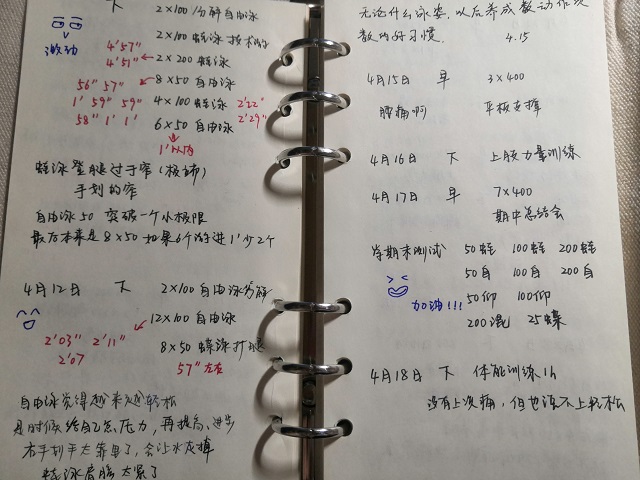 下 2×100 分解自由泳
2×100 蛙泳 技术游
激动
4'57"
4'51" 2×200 蛙泳
56" 57" 8×50 自由泳
1' 59" 59" 4×100 蛙泳 2'22"
58" 1' 1' 6×50 自由泳 2'29"
1'以内
蛙泳蹬腿过于窄(板姊)
手划的窄
自由泳50 突破一个小极限
最后本来是8×50 如果6个游进1'少2个
4月12日 下 2×100 自由泳分解
12×100 自由泳
2'03" 2'11"
2'07 8×50 蝶泳打腿
57"左右
自由泳觉得越来越轻松
是时候给自己点压力,再提高、进步
右手划手太靠里了,会让水花掉
蛙泳肩膀太紧了
无论什么泳姿,以后养成数动作次
数的好习惯. 4.15
4月15日 早 3×400
腰痛啊 平板支撑
4月16日 下 上肢力量训练
4月17日 早 7×400
期中总结会
学期末测试 50蛙 100蛙 200蛙
50自 100自 200自
加油!!! 50仰 100仰
200混 25蝶
4月18日 下 体能训练1h
没有上次痛,但也谈不上轻松